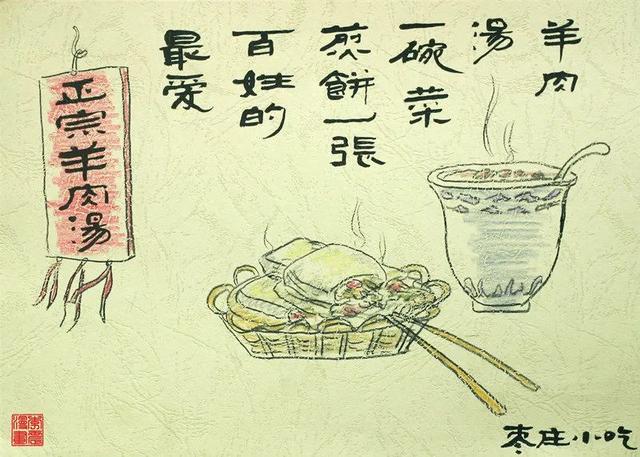 羊肉
湯
一碗菜
煎餅一張
百姓的
最爱
正宗羊肉湯
枣庄小吃